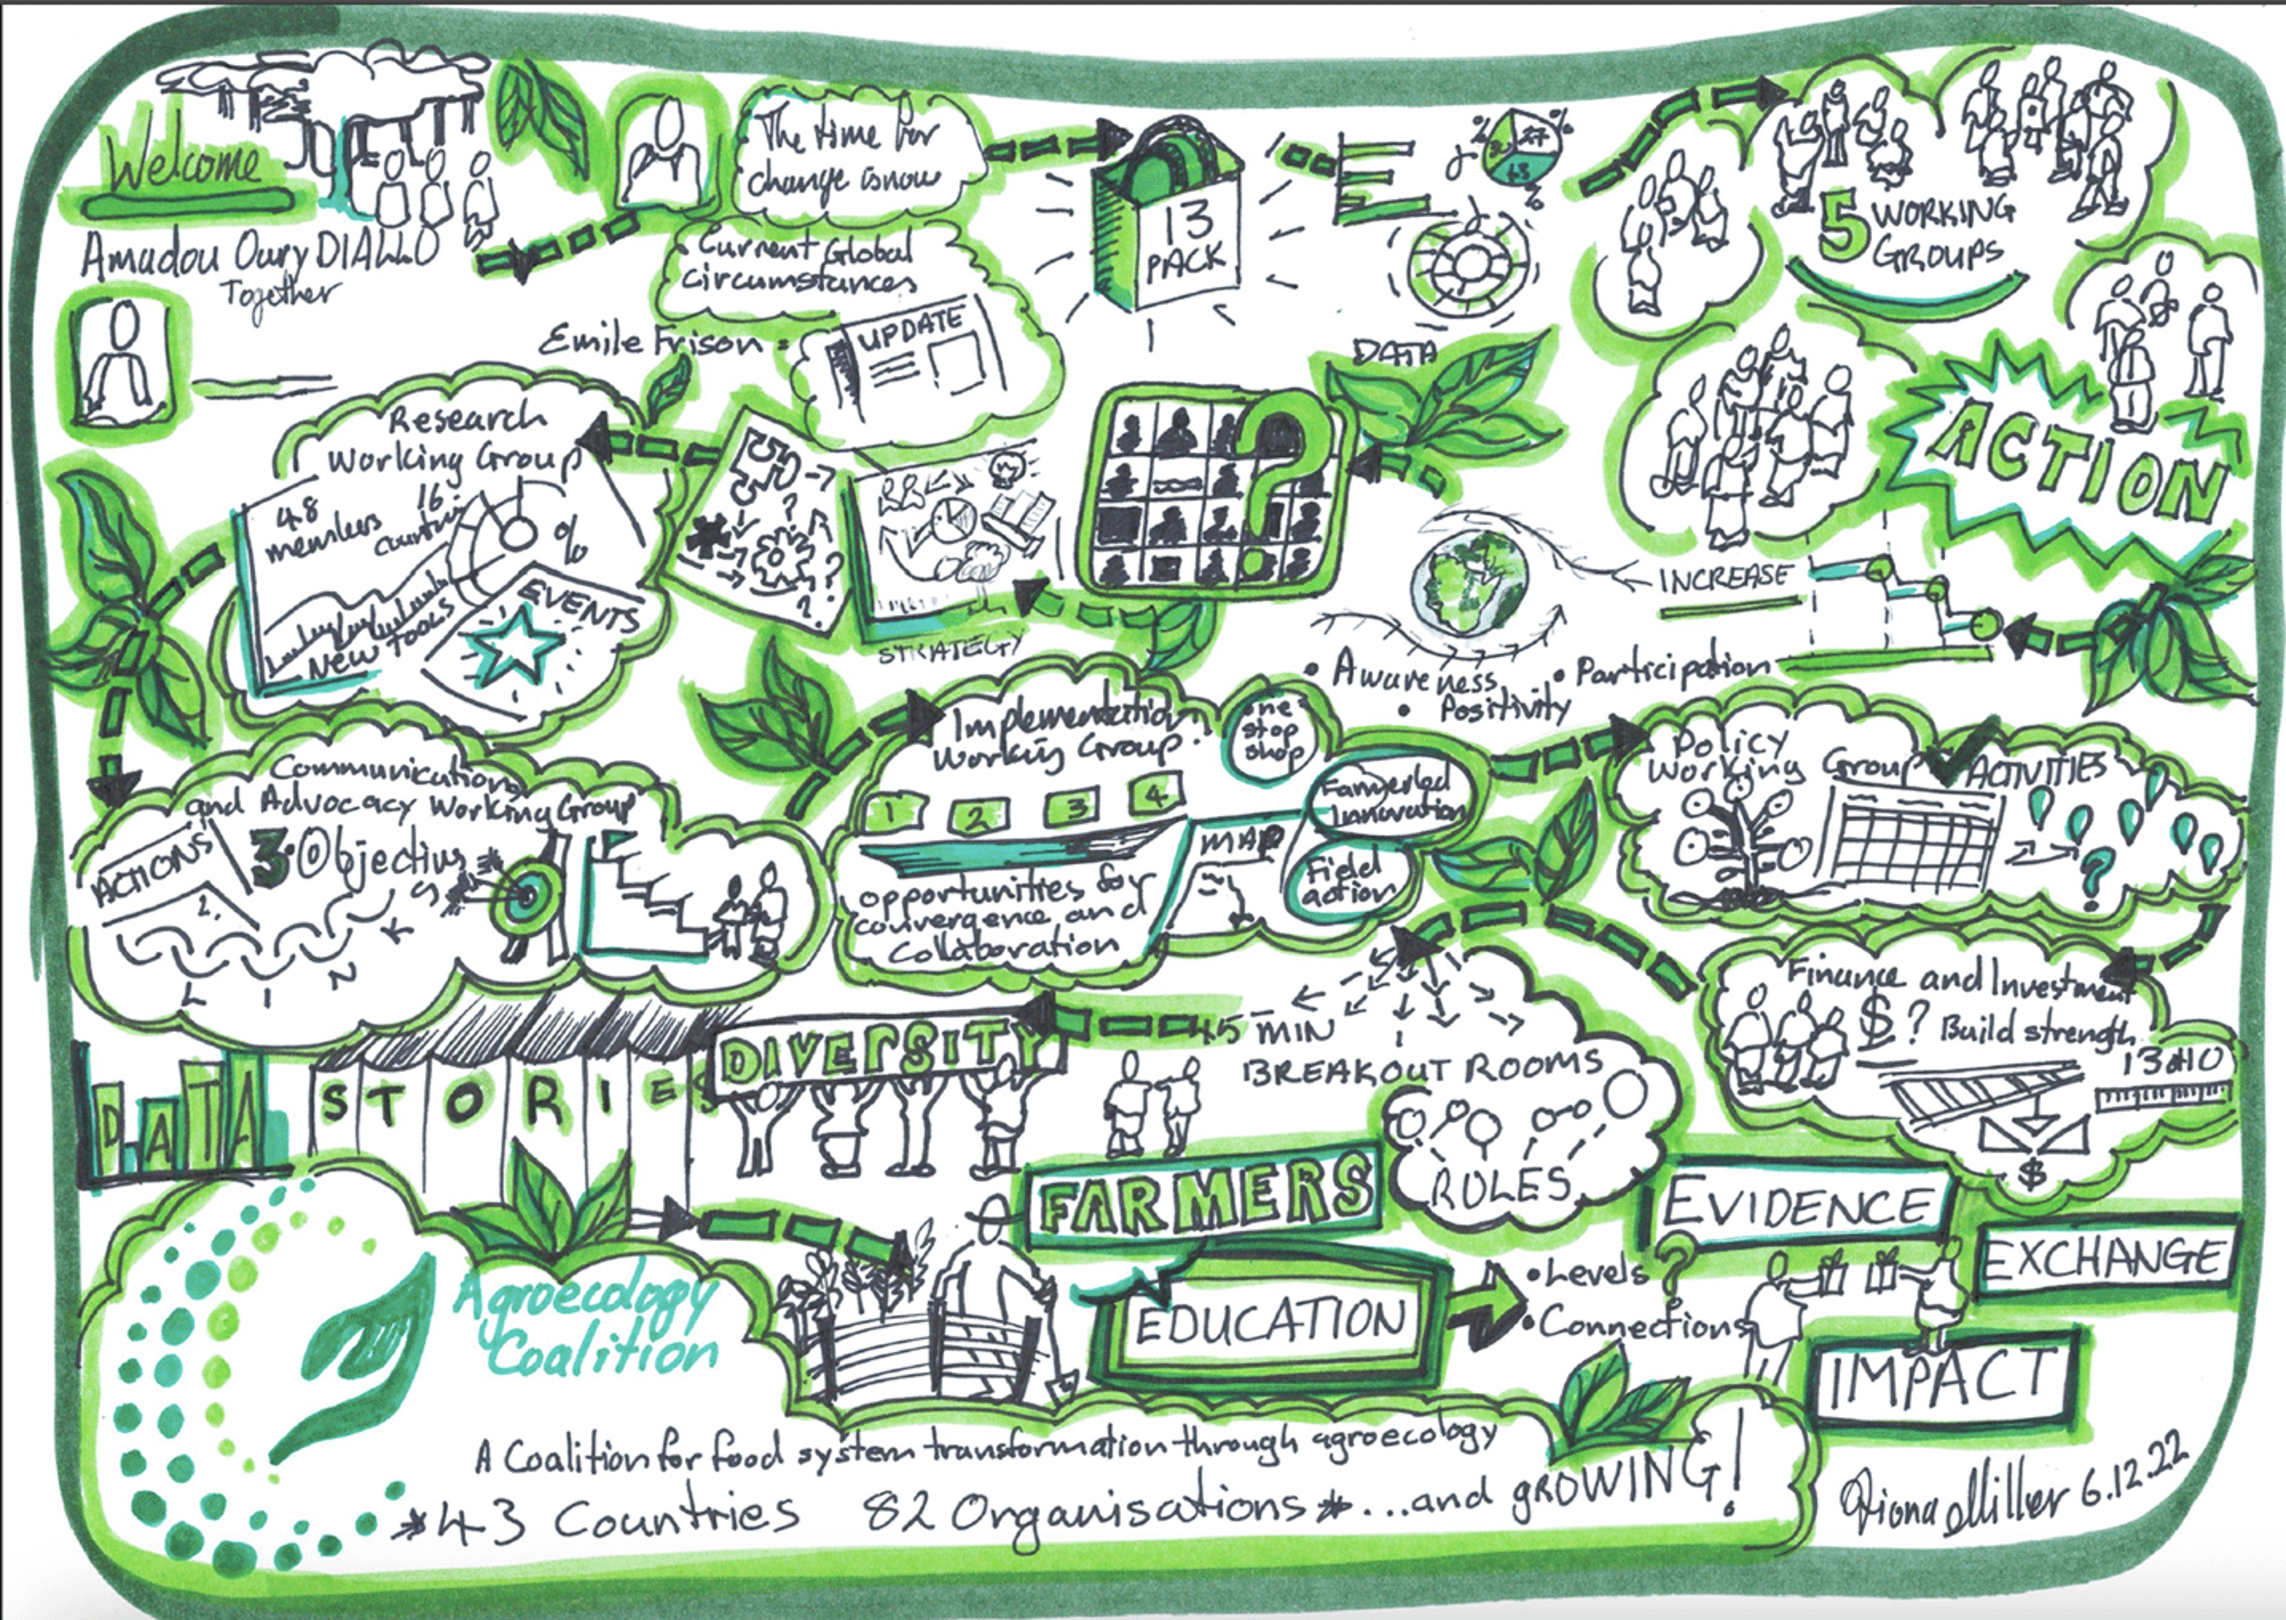 Welcome
Amadou Oury DIALLO
Together
The time for
change is now
Current Global
Circumstances
Emile Frison =
UPDATE
13
PACK
DATA
5 WORKING
GROUPS
ACTION
INCREASE
• Awareness
• Participation
• Positivity
?
STRATEGY
Research
Working Group
48
members
16
countries
%
NEW TOOLS
EVENTS
Communications
and Advocacy Working Group
ACTIONS
3 Objectives
L I N K S
Implementation
Working Group
1 2 3 4
opportunities for
convergence and
collaboration
MAP
one
stop
shop
Farmer led
Innovation
Field
action
Policy
Working Group
ACTIVITIES
?
Finance and Investment
$ ? Build strength
$
45 MIN
BREAKOUT ROOMS
RULES
DIVERSITY
STORIES
DATA
FARMERS
EDUCATION
• Levels
• Connections
EVIDENCE
?
EXCHANGE
IMPACT
Agroecology
Coalition
A Coalition for food system transformation through agroecology
*43 Countries 82 Organisations* ...and GROWING!
Fiona Miller 6.12.22